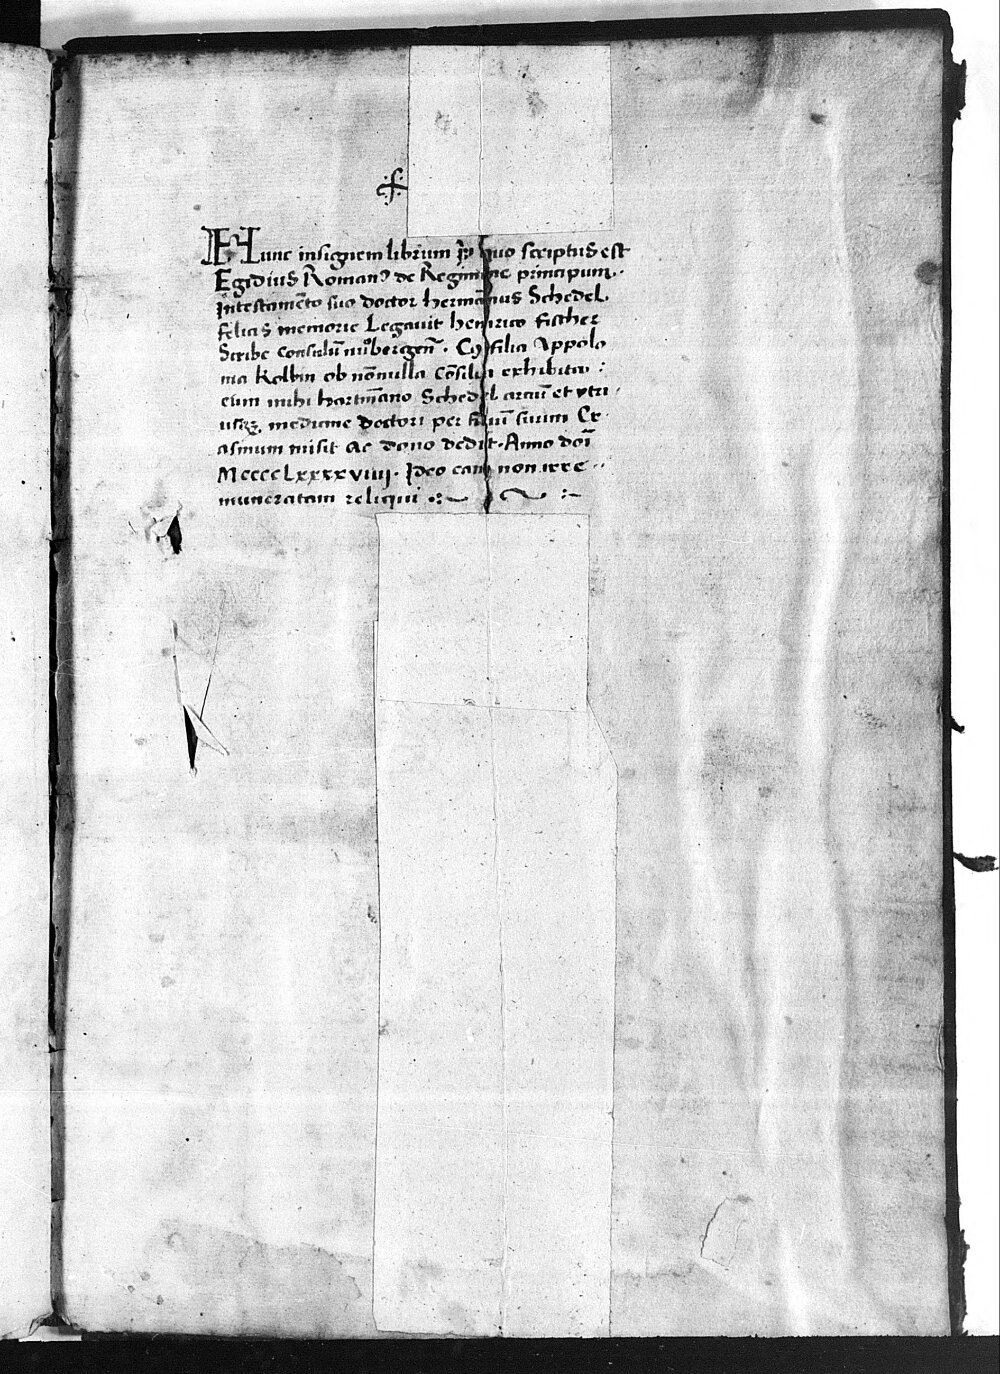 Hunc insignem librum In quo scriptus est
Egidius Romanꝰ de Regimine principum.
Intestamēto suo doctor hermānus Schedel.
felicis memorie Legavit henrico fischer
Scribe consulū nūbergeñ. Cꝰ filia Appolo
nia Kolbin ob nōnulla cōsilia exhibita :
eum mihi hartmāno Schedel arciū et utri
usqꝫ medicine doctori per filiū suum Er
asmum misit ac dono dedit. Anno doī
MccccLxxxxviiij. Ideo eam non irre
muneratam reliqui